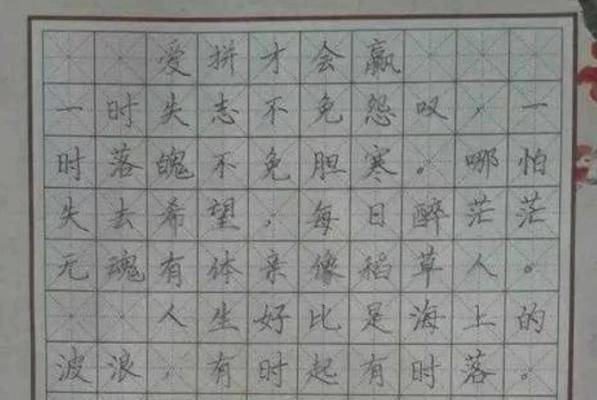 爱拼才会赢
一时失志不免怨叹，一
时落魄不免胆寒。哪怕
失去希望，每日醉茫茫
无魂有体亲像稻草人。
人生好比是海上的
波浪，有时起有时落。